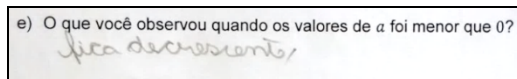 e) O que você observou quando os valores de a foi menor que 0?
fica decrescente,